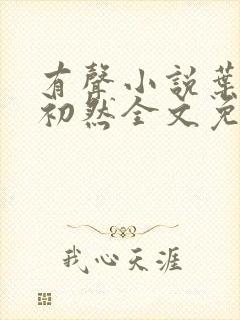 有聲小說葉
初然全文免
我心天涯